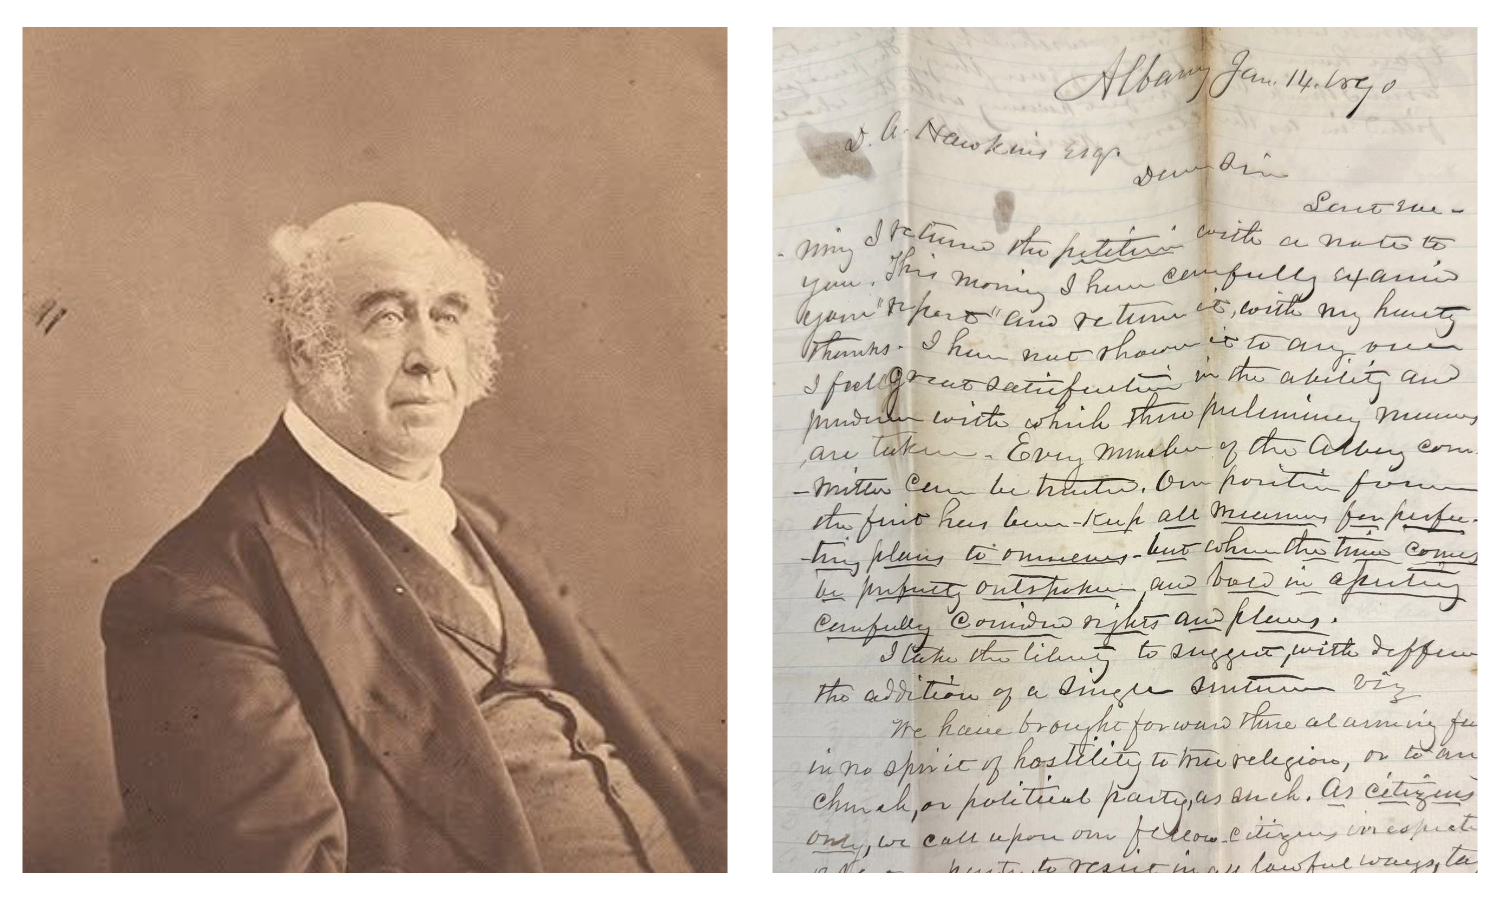 Albany Jan. 14. 1870
D. A. Hawkins Esq.
Dear Sir
Last eve-
-ning I returned the petition with a note to
you. This morning I have carefully examined
your "report" and return it, with my hearty
thanks. I have not shown it to any one
I feel great satisfaction in the ability and
prudence with which these preliminary measures
are taken. Every member of the Albany com-
-mittee can be trusted. Our position from
the first has been - Keep all measures for perfec-
-ting plans to ourselves - but when the time comes
be perfectly outspoken and bold in asserting
carefully considered rights and plans.
I take the liberty to suggest, with deference
the addition of a single sentence viz
We have brought forward these alarming
in no spirit of hostility to true religion, or to any
church, or political party, as such. As citizens
only, we call upon our fellow-citizens irrespective
party, to resist in all lawful ways,